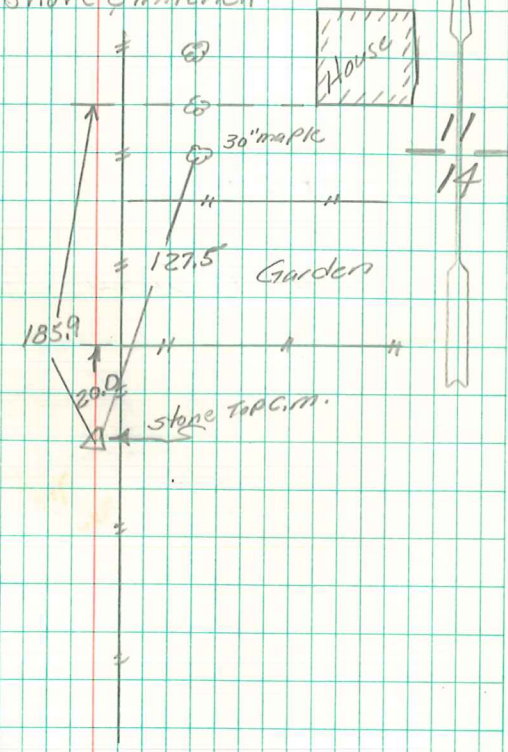 House
11
30" maple
14
127.5
Garden
185.9
20.0
stone Top C.M.